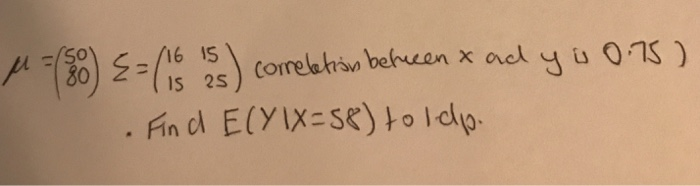 μ = (50 80) Σ = (16 15 15 25) correlation between x and y is 0.75)
. Find E(Y|X=58) to 1dp.